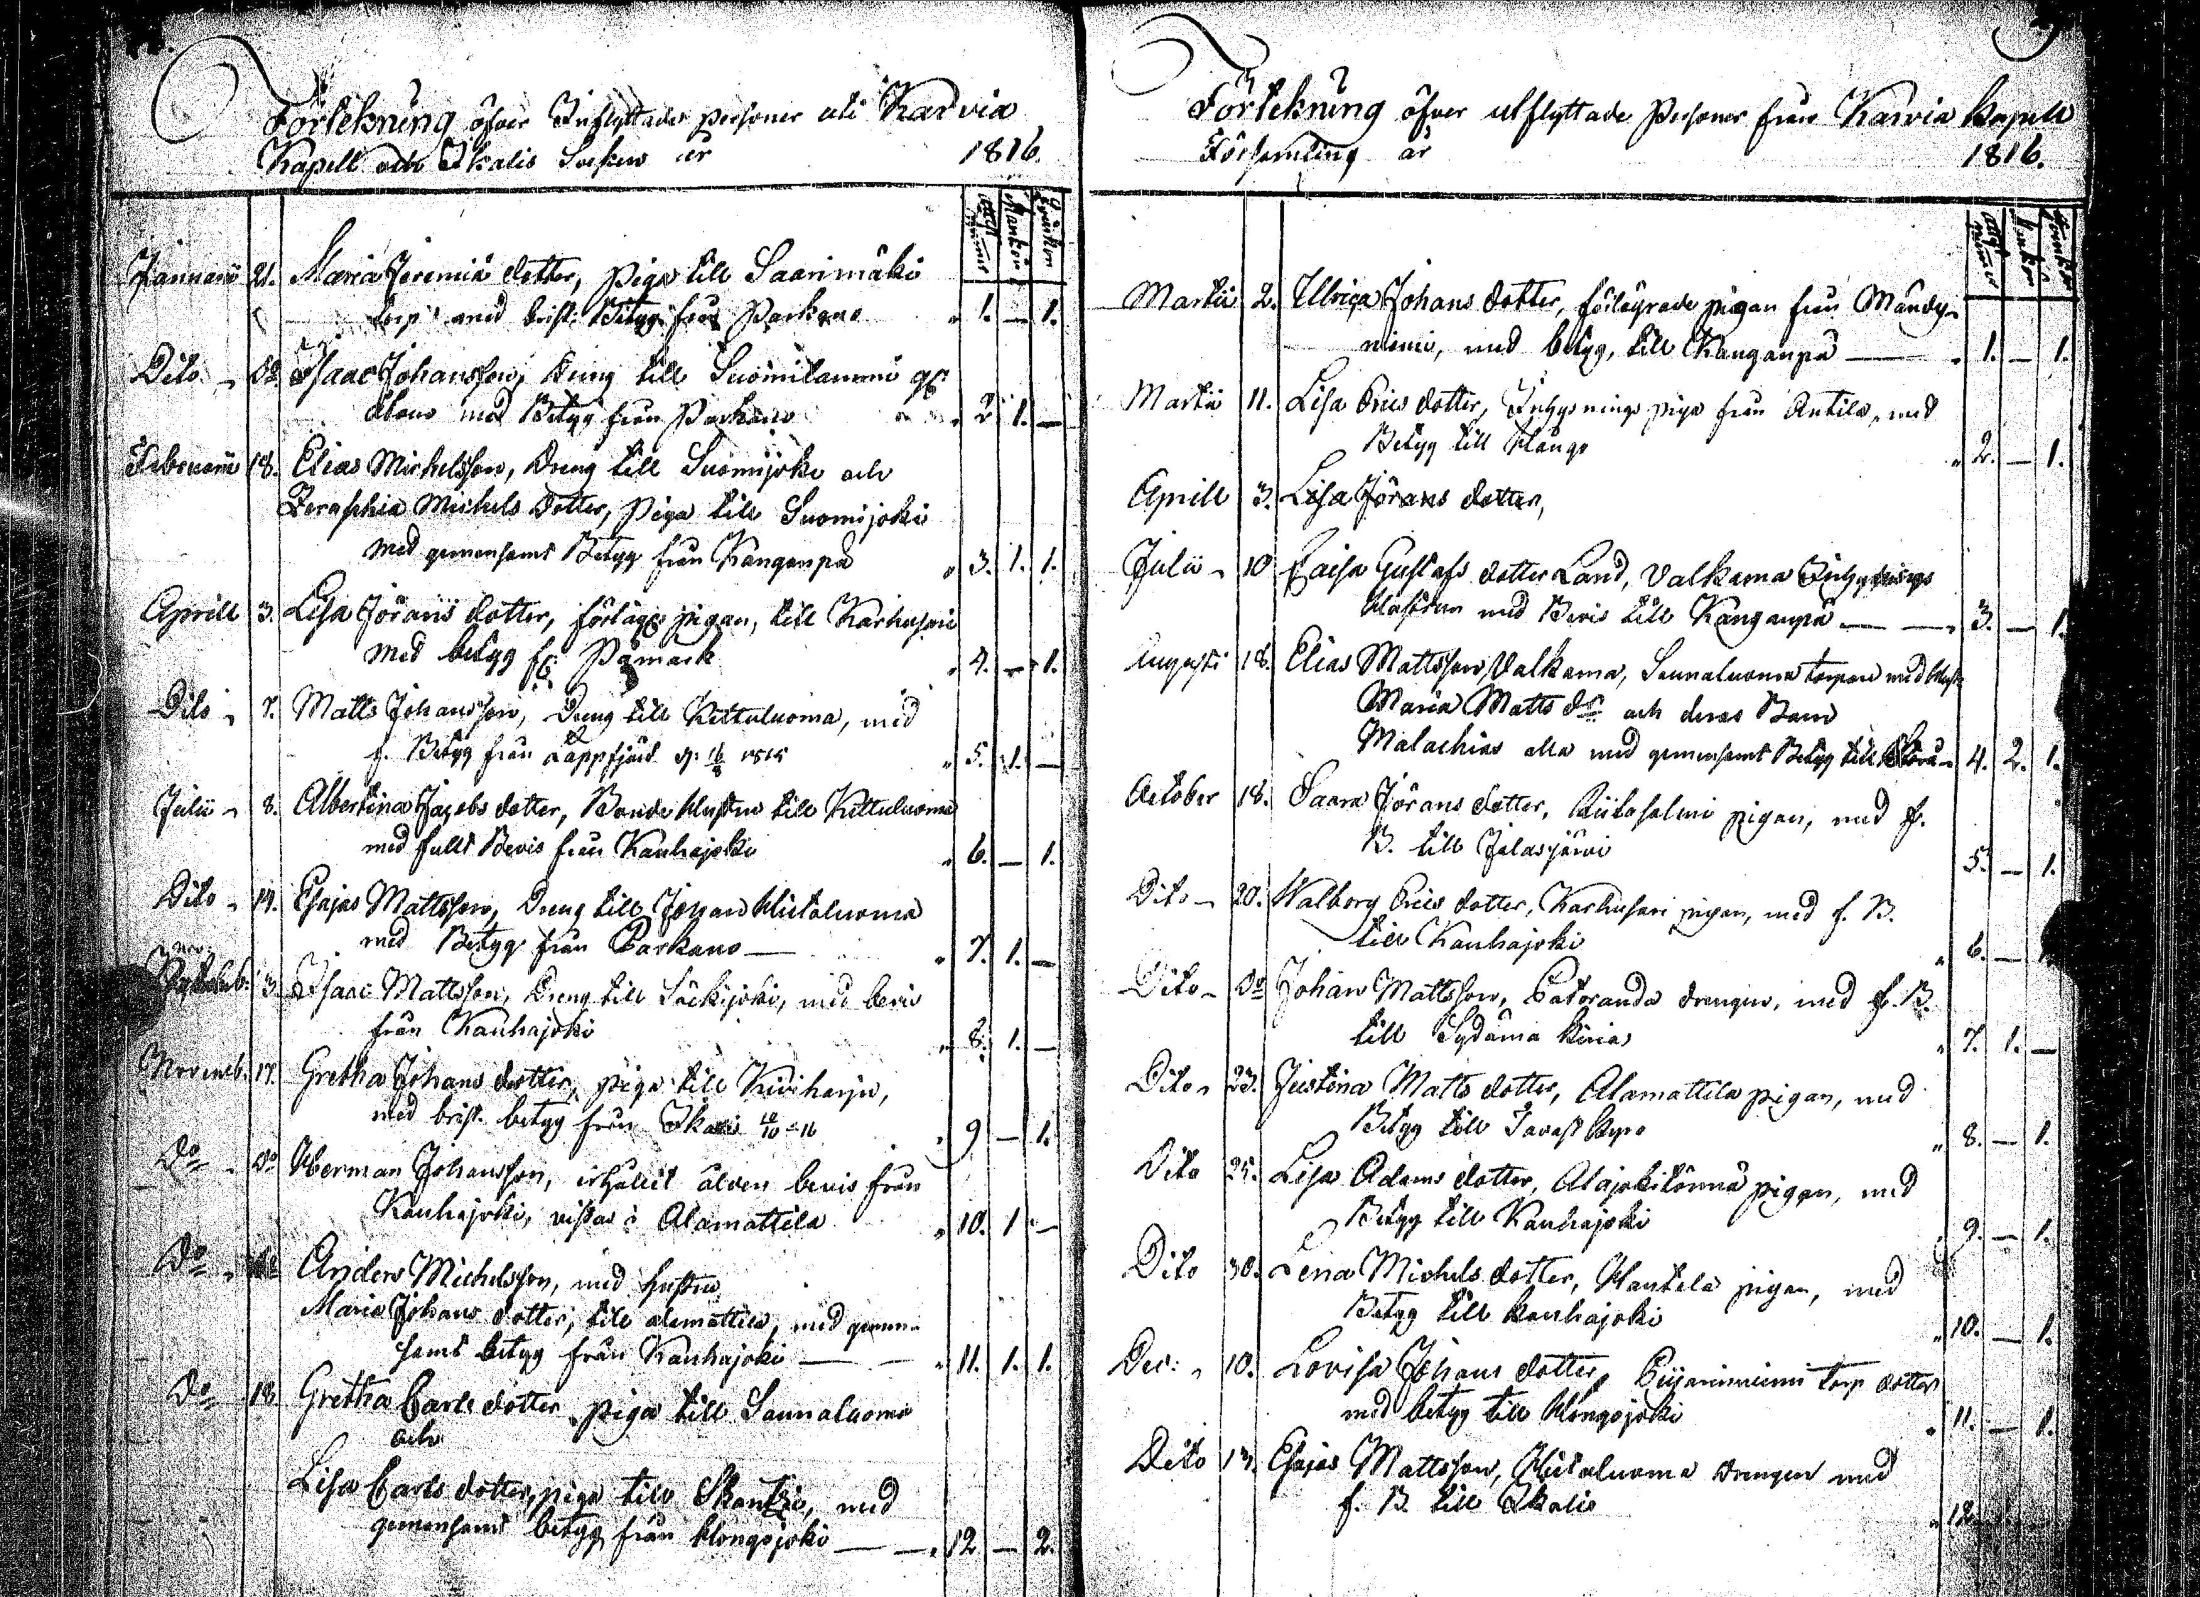 Förtekning öfver Inflyttade personer uti Karvia
Kapell och Ikalis Socken år 1816.
Attest Nummer Mankön Qvinkön
Januarii 21. Maria Jeremiæ dotter, piga till Saarimäki
torp med brist. Betyg från Parkano " 1. — 1.
Dito " Do Isaac Johansson, Dreng till Suomilammi
med Betyg från Parkano " 2. 1. —
Februarii 18. Elias Michelsson, Dreng till Suomijoki och
Zeraphia Michels dotter, piga till Suomijoki
med gemensamt Betyg från Kanganpä " 3. 1. 1.
Aprill 3. Lisa Jörans dotter, förlägr. pigan, till Karhusari
med betyg fr. Påmark " 4. — 1.
Dito " 7. Matts Johansson, Dreng till Kettuluoma, med
f. Betyg från Lappfjärd d. 16/8 1815 " 5. 1. —
Julii " 8. Albertina Jacobs dotter, Bonde Hustru till Kettuluoma
med fullt Bevis från Kauhajoki " 6. — 1.
Dito " 14. Esajas Mattsson, Dreng till Johan Hietaluoma
med Betyg från Parkano — " 7. 1. —
3. Isaac Mattsson, Dreng till Säckijoki, med bevis
från Kauhajoki " 8. 1. —
Novemb. 17. Gretha Johans dotter, piga till Kiviharju,
med brist. betyg från Ikalis " 9 — 1.
Do " Do Herman Johansson, erhållit älven bevis från
Kauhajoki, vistas i Alamattila " 10. 1 —
Do " Do Anders Michelsson, med hustru
Maria Johans dotter, till alamattila, med gemen-
samt betyg från Kauhajoki — — " 11. 1. 1.
Do 18 Gretha Carls dotter piga till Saunaluoma
och
Lisa Carls dotter, piga till Skantzi, med
gemensamt betyg från Hongojoki — — " 12 — 2.
Förtekning öfver utflyttade Personer från Karvia Kapell
Församling år 1816.
Attest Nummer Mankön Qvinkön
Martii 2. Ullrica Johans dotter, förlägrade pigan från Mändy-
niemi, med betyg, till Kanganpä — " 1. — 1.
Martii 11. Lisa Erics dotter, Inhysnings piga från Antila, med
Betyg till " 2. — 1.
Aprill 3. Lisa Jörans dotter,
Julii " 10 Caisa Gustafs dotter Land, Valkama Inhysnings
Hustrun med Bevis till Kanganpä — — " 3. — 1.
Augusti 18. Elias Mattsson Valkama, Saunaluoma torparn med Hust.
Maria Matts dr och deras Barn
Malachias alla med gemensamt Betyg till 4. 2. 1.
October 18. Saara Jörans dotter, pigan, med f.
B. till Jalasjärvi 5. — 1.
Dito — 20. Walborg Erics dotter, Karhusari pigan, med f. B.
till Kauhajoki " 6. —
Dito — Do Johan Mattsson, Patoranda drengen, med f. B.
till Sydäma " 7. 1. —
Dito " 23. Justina Matts dotter, Alamattila pigan, med
Betyg till Tavast Kyro " 8. — 1.
Dito 25. Lisa Adams dotter, Alajokitörmä pigan, med
Betyg till Kauhajoki " 9. — 1.
Dito 30. Lena Michels dotter, Hantela pigan, med
Betyg till Kauhajoki " 10. — 1.
Dec: " 10. Lovisa Johans dotter, torp dotter
med betyg till Hongojoki " 11. — 1.
Dito 13. Esajas Mattsson, Hietaluoma drengen med
f. B till Ikalis " 12